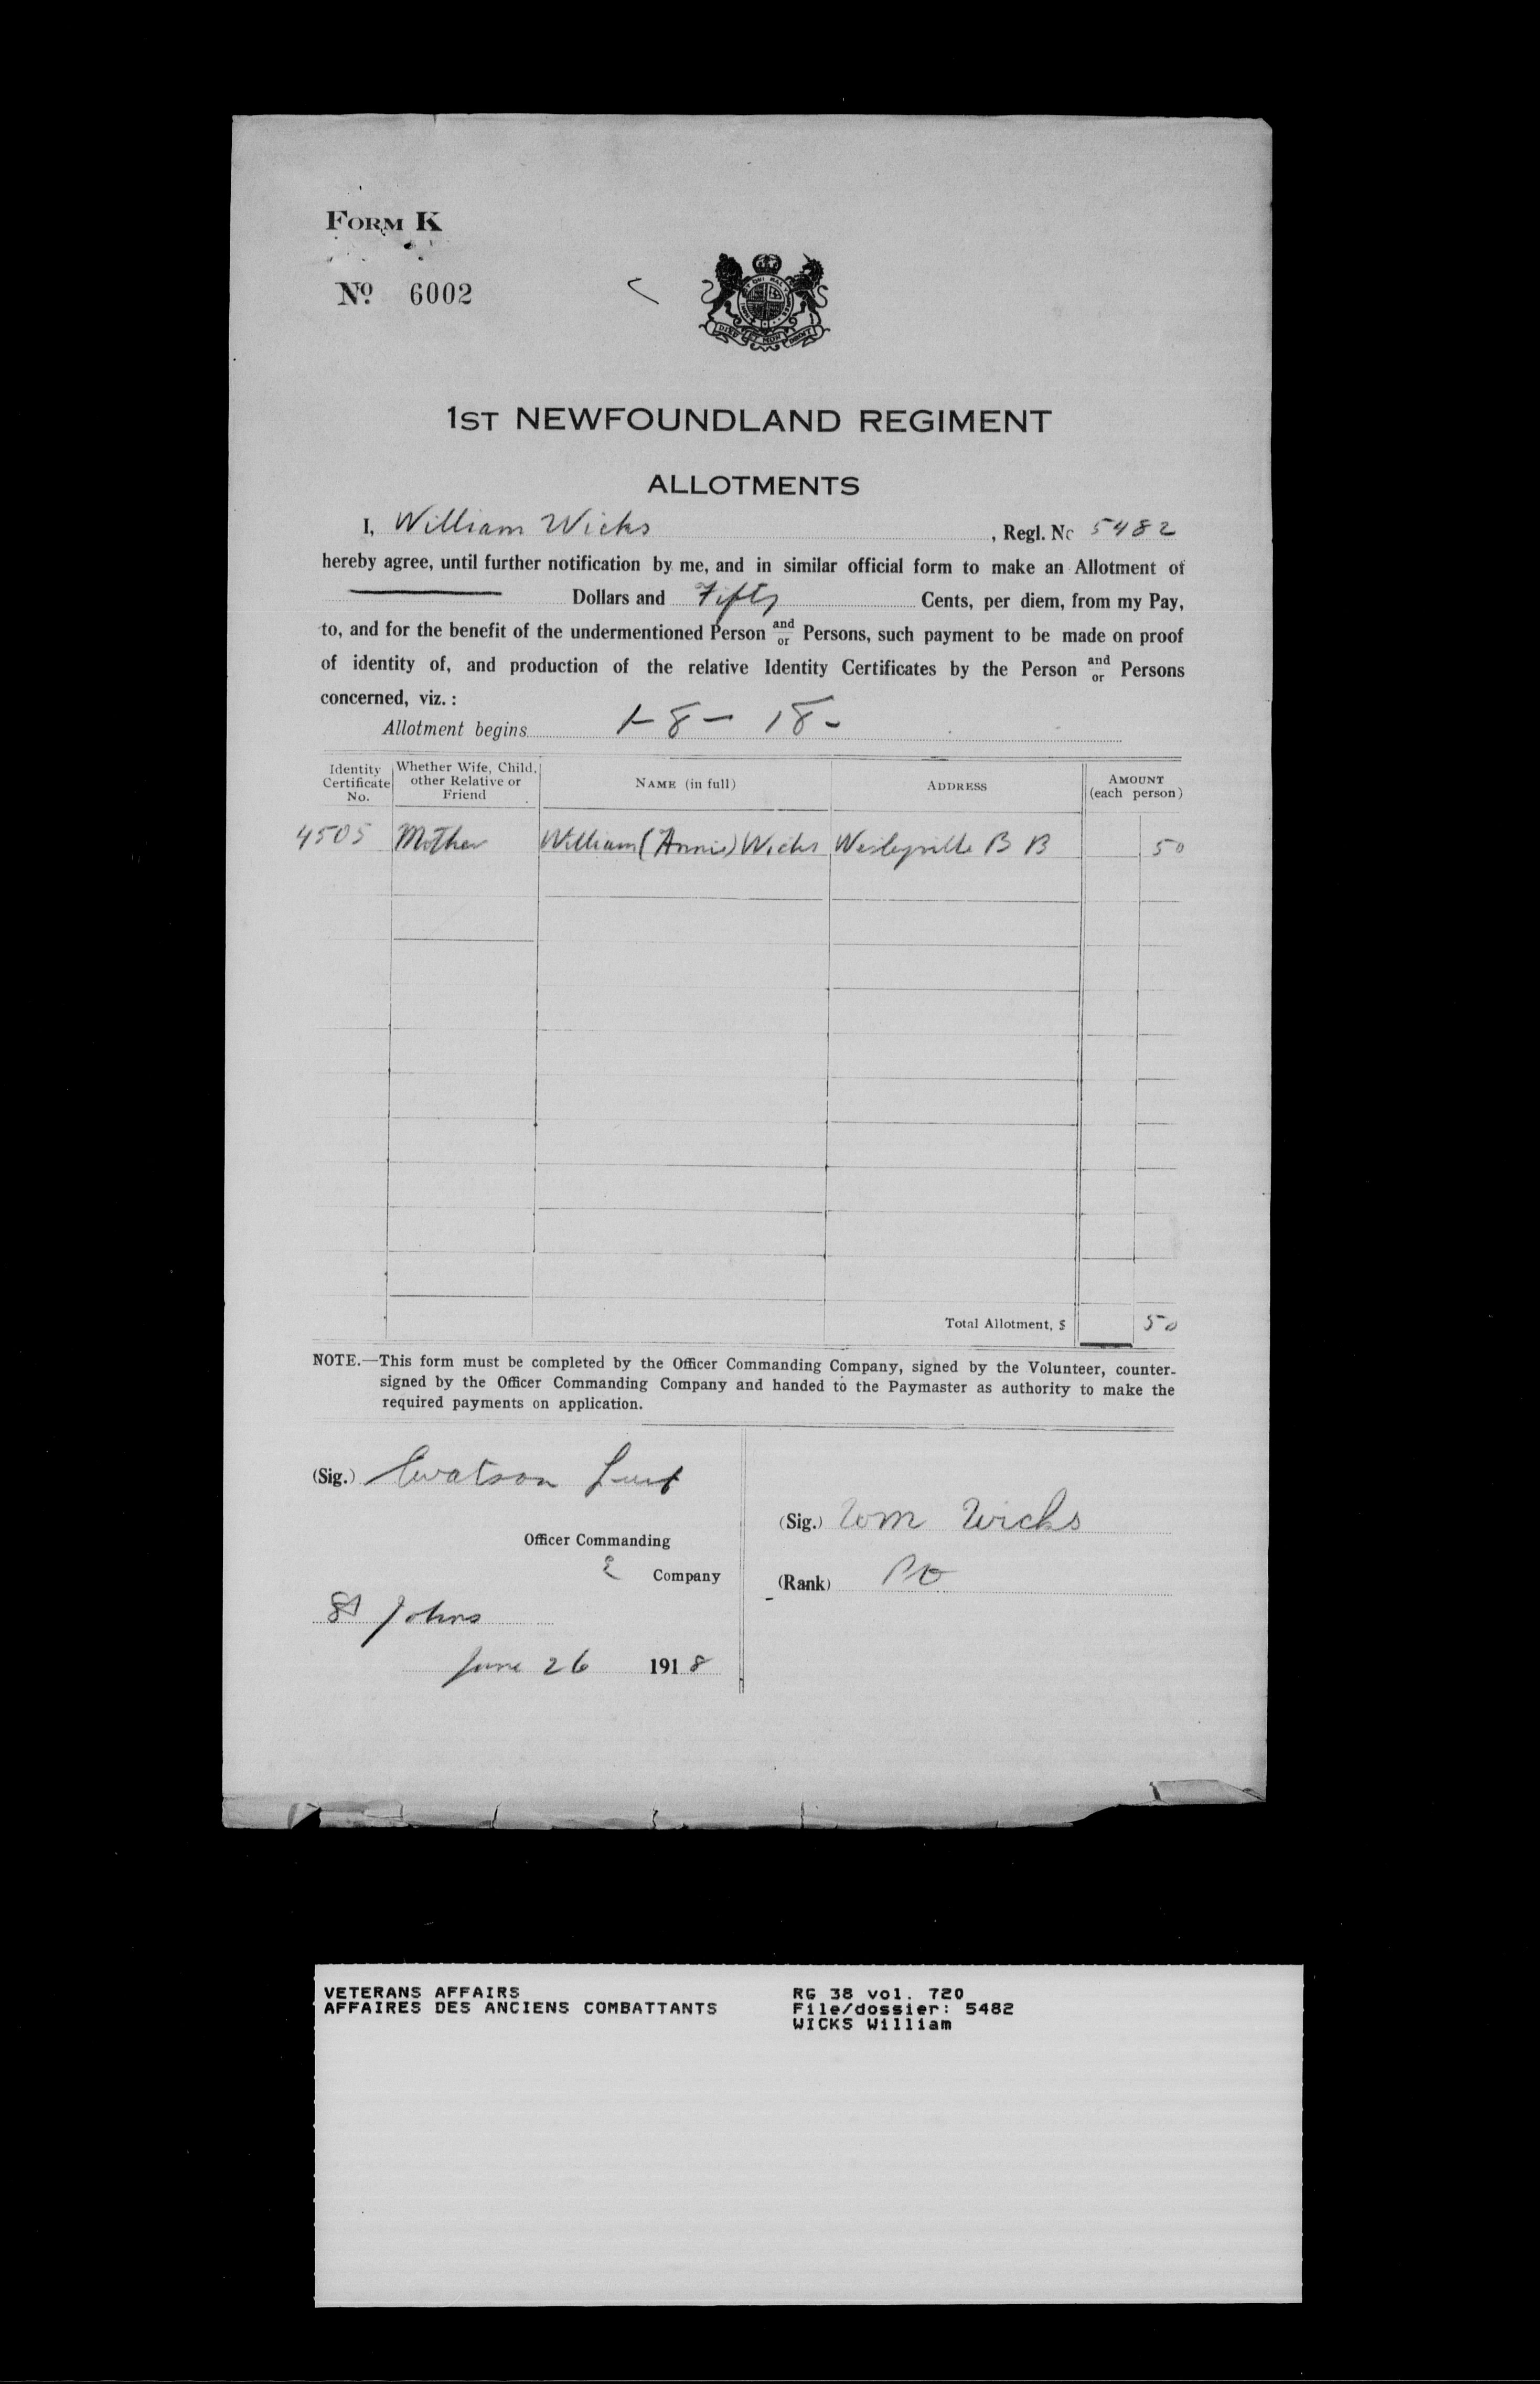 FORM K
No. 6002
DIEU ET MON DROIT
1ST NEWFOUNDLAND REGIMENT
ALLOTMENTS
I, William Wicks, Regl. No 5482
hereby agree, until further notification by me, and in similar official form to make an Allotment of
Dollars and Fifty Cents, per diem, from my Pay,
to, and for the benefit of the undermentioned Person and/or Persons, such payment to be made on proof
of identity of, and production of the relative Identity Certificates by the Person and/or Persons
concerned, viz. :
Allotment begins 1-8-18-
Identity Certificate No. Whether Wife, Child, other Relative or Friend NAME (in full) ADDRESS AMOUNT (each person)
4505 Mother William (Annie) Wicks Wesleyville B B 50
Total Allotment, $ 50
NOTE.—This form must be completed by the Officer Commanding Company, signed by the Volunteer, counter-
signed by the Officer Commanding Company and handed to the Paymaster as authority to make the
required payments on application.
(Sig.) Watson Lieut
Officer Commanding
Company
St Johns
June 26 1918
(Sig.) Wm Wicks
(Rank)
VETERANS AFFAIRS
AFFAIRES DES ANCIENS COMBATTANTS
RG 38 vol. 720
File/dossier: 5482
WICKS William